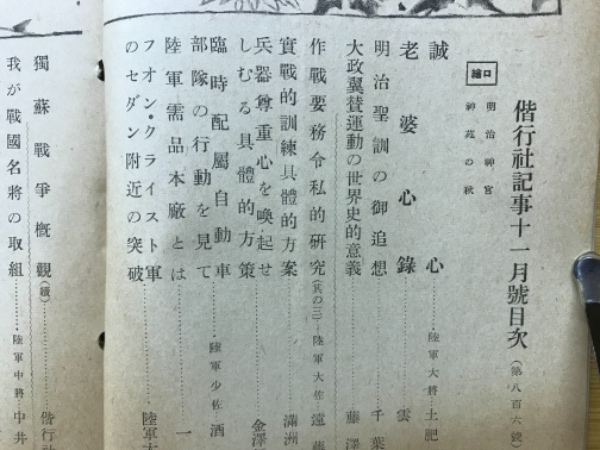 偕行社記事十一月號目次（第八百六號）
口繪
明治神宮
神苑の秋
誠心……陸軍大將 土肥
老婆心錄……雲
明治聖訓の御追想……千葉
大政翼贊運動の世界史的意義……藤澤
作戰要務令私的研究（其の三）……陸軍大佐 遠藤
實戰的訓練具體的方案……滿洲
兵器尊重心を喚起せ
しむる具體的方策……金澤
臨時配屬自動車
部隊の行動を見て……陸軍少佐 酒
陸軍需品本廠とは……一
フオン・クライスト軍
のセダン附近の突破……陸軍大
獨蘇戰爭概觀（續）……偕行社
我が戰國名將の取組……陸軍中將 中井